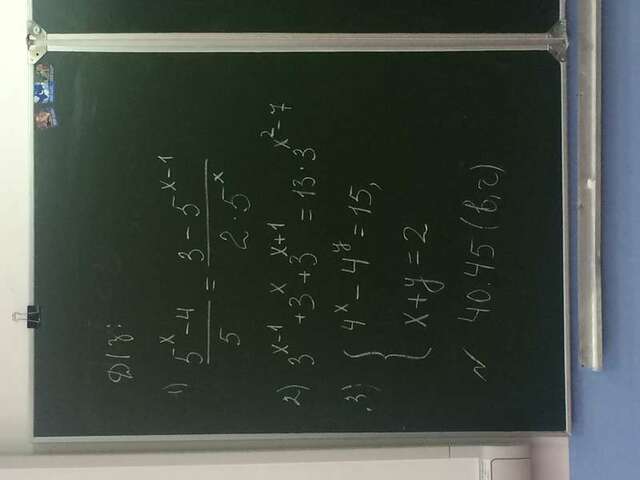 D/з:
1) (5^x - 4)/5 = (3 - 5^(x-1))/(2·5^x)
2) 3^(x-1) + 3^x + 3^(x+1) = 13·3^(x²-7)
3) { 4^x - 4^y = 15,
x + y = 2
N 40.45 (в,г)